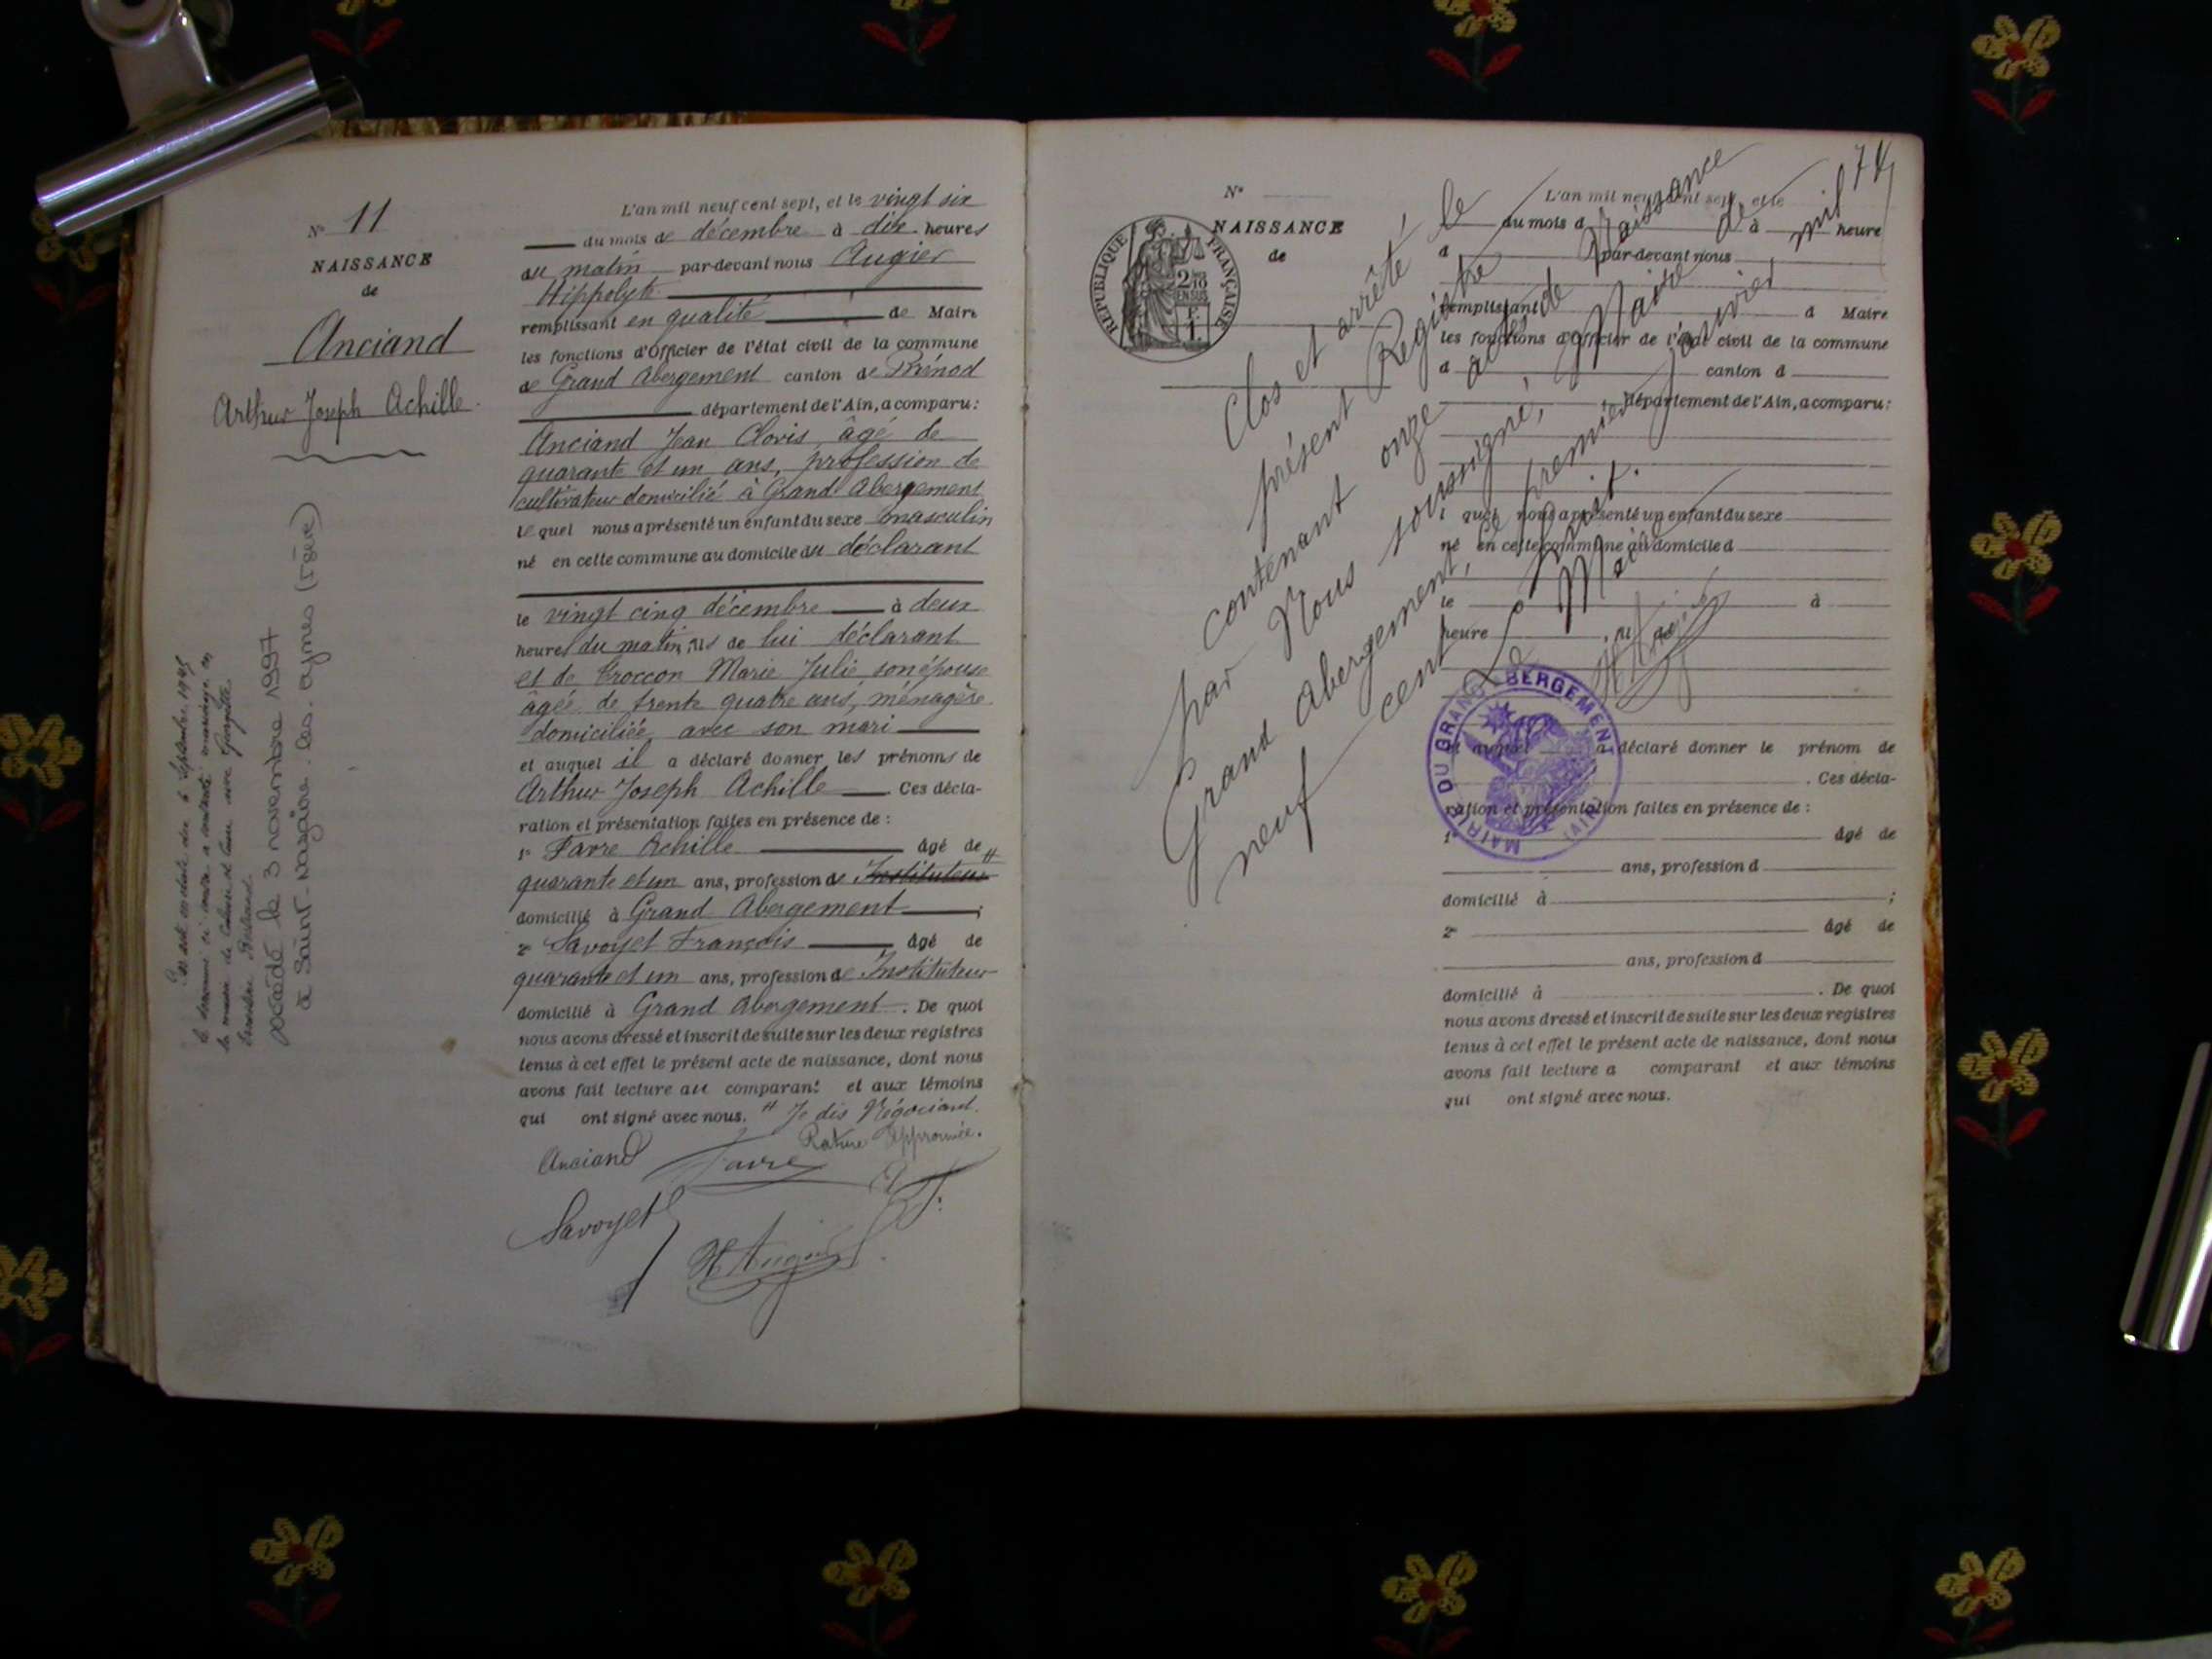 N° 11
NAISSANCE
de
Anciand
Arthur Joseph Achille.
L'an mil neuf cent sept, et le vingt six
du mois de décembre à dix heures
du matin par-devant nous Augier
Hippolyte
remplissant en qualité de Maire
les fonctions d'Officier de l'état civil de la commune
de Grand Abergement canton de Brénod
département de l'Ain, a comparu:
Anciand Jean Clovis âgé de
quarante et un ans, profession de
cultivateur domicilié à Grand Abergement
lequel nous a présenté un enfant du sexe masculin
né en cette commune au domicile du déclarant
le vingt cinq décembre à deux
heures du matin, fils de lui déclarant
et de Croccon Marie Julie son épouse
âgée de trente quatre ans, ménagère
domiciliée avec son mari
et auquel il a déclaré donner les prénoms de
Arthur Joseph Achille. Ces décla-
ration et présentation faites en présence de :
1° Favre Achille âgé de
quarante et un ans, profession de Instituteur
domicilié à Grand Abergement ;
2° Savoyet François âgé de
quarante et un ans, profession de Instituteur
domicilié à Grand Abergement. De quoi
nous avons dressé et inscrit de suite sur les deux registres
tenus à cet effet le présent acte de naissance, dont nous
avons fait lecture au comparant et aux témoins
qui ont signé avec nous. # Je dis Négociant.
Rature approuvée.
Anciand Favre
Savoyet
H Augier
septembre 1945
décédé le 3 novembre 1997
à Saint-Nazaire-les-Eymes (Isère)
74
N°
NAISSANCE
de
RÉPUBLIQUE FRANÇAISE
2/10 EN SUS
L'an mil neuf cent sept, et le
du mois d à heure
d par-devant nous
remplissant d Maire
les fonctions d'Officier de l'état civil de la commune
d canton d
département de l'Ain, a comparu:
l quel nous a présenté un enfant du sexe
né en cette commune au domicile d
le à
heure
et auquel a déclaré donner le prénom de
. Ces décla-
ration et présentation faites en présence de :
1° âgé de
ans, profession d
domicilié à ;
2° âgé de
ans, profession d
domicilié à . De quoi
nous avons dressé et inscrit de suite sur les deux registres
tenus à cet effet le présent acte de naissance, dont nous
avons fait lecture a comparant et aux témoins
qui ont signé avec nous.
Clos et arrêté le
présent Registre
contenant onze actes de Naissance
par Nous soussigné, Maire de
Grand Abergement, le premier Janvier mil
neuf cent huit.
Le Maire
MAIRIE DU GRAND ABERGEMENT (AIN)